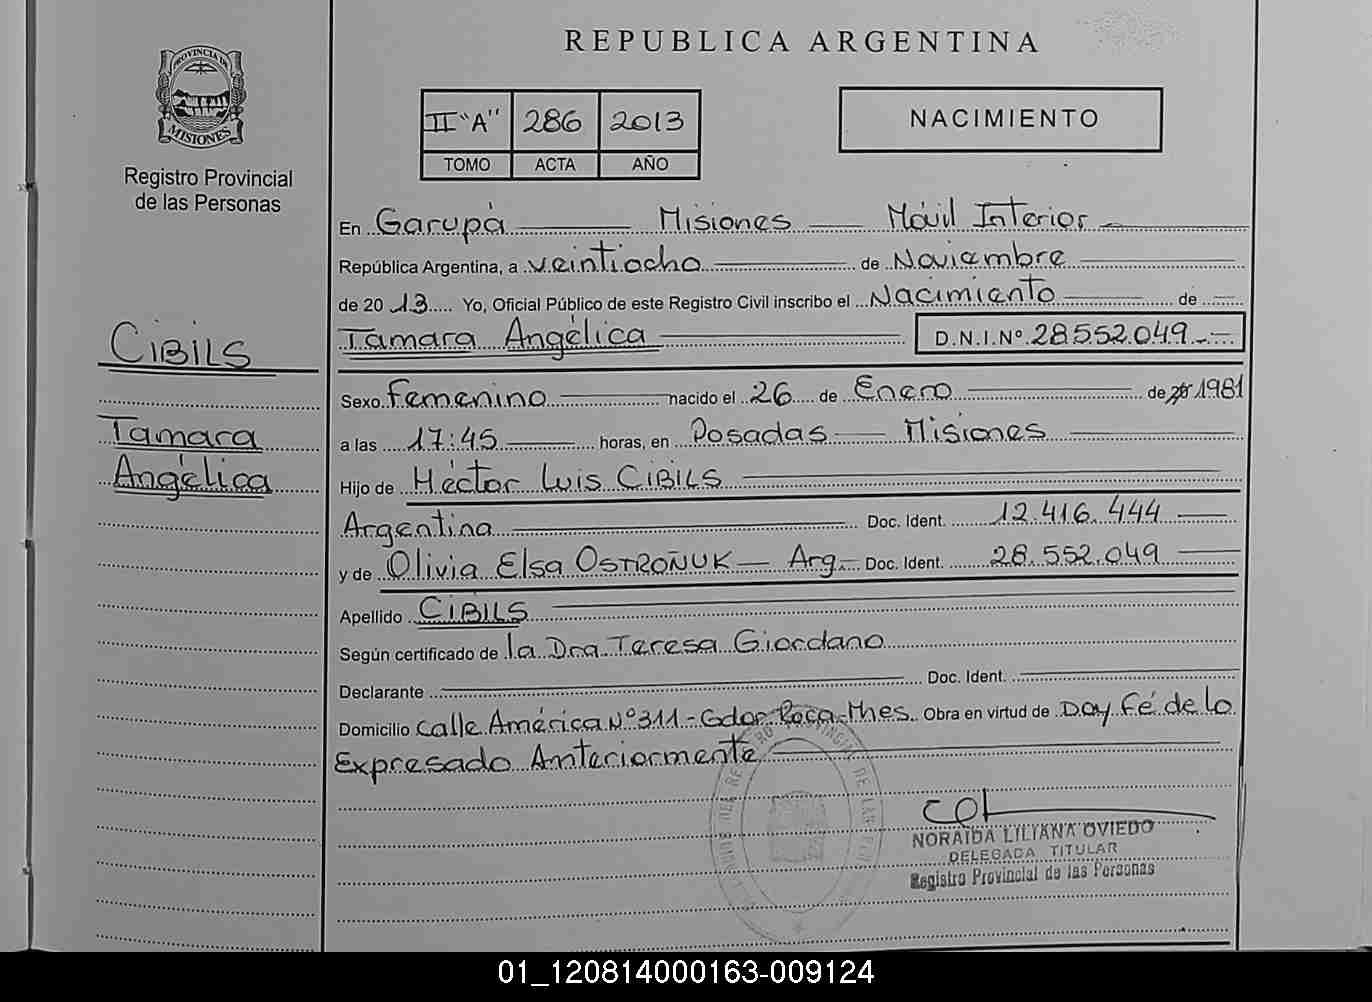 REPUBLICA ARGENTINA
PROVINCIA DE
MISIONES
Registro Provincial
de las Personas
II "A" 286 2013
TOMO ACTA AÑO
NACIMIENTO
En Garupá Misiones Móvil Interior
República Argentina, a veintiocho de Noviembre
de 20 13 Yo, Oficial Público de este Registro Civil inscribo el Nacimiento de
Tamara Angélica D.N.I.Nº 28.552.049
CIBILS
Tamara
Angélica
Sexo Femenino nacido el 26 de Enero de 1981
a las 17:45 horas, en Posadas Misiones
Hijo de Héctor Luis CIBILS
Argentina Doc. Ident. 12.416.444
y de Olivia Elsa OSTROÑUK Arg. Doc. Ident. 28.552.049
Apellido CIBILS
Según certificado de la Dra. Teresa Giordano
Declarante Doc. Ident.
Domicilio Calle América Nº 311 - Gdor Roca - Mnes. Obra en virtud de Doy Fé de lo
Expresado Anteriormente
NORAIDA LILIANA OVIEDO
DELEGADA TITULAR
Registro Provincial de las Personas
01_120814000163-009124